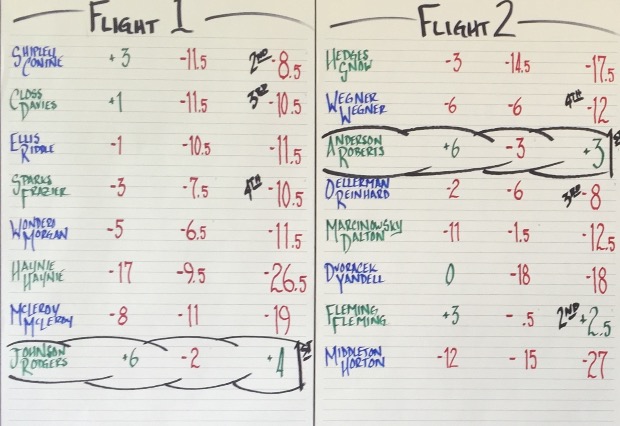 FLIGHT 1
SHIPLEY +3 -11.5 2ND -8.5
CONINE
CLOSS +1 -11.5 3RD -10.5
DAVIES
ELLIS -1 -10.5 -11.5
RIDDLE
SPARKS -3 -7.5 4TH -10.5
FRAZIER
WONDERS -5 -6.5 -11.5
MORGAN
HAYNIE -17 -9.5 -26.5
HAYNIE
MCLEROY -8 -11 -19
MCLEROY
JOHNSON +6 -2 +4 1ST
RODGERS
FLIGHT 2
HEDGES -3 -14.5 -17.5
SNOW
WEGNER -6 -6 4TH -12
WEGNER
ANDERSON +6 -3 +3
ROBERTS
OELLERMAN -2 -6 3RD -8
REINHARD
MARCINOWSKY -11 -1.5 -12.5
DALTON
DVORACEK 0 -18 -18
YANDELL
FLEMING +3 -.5 2ND +2.5
FLEMING
MIDDLETON -12 -15 -27
HORTON